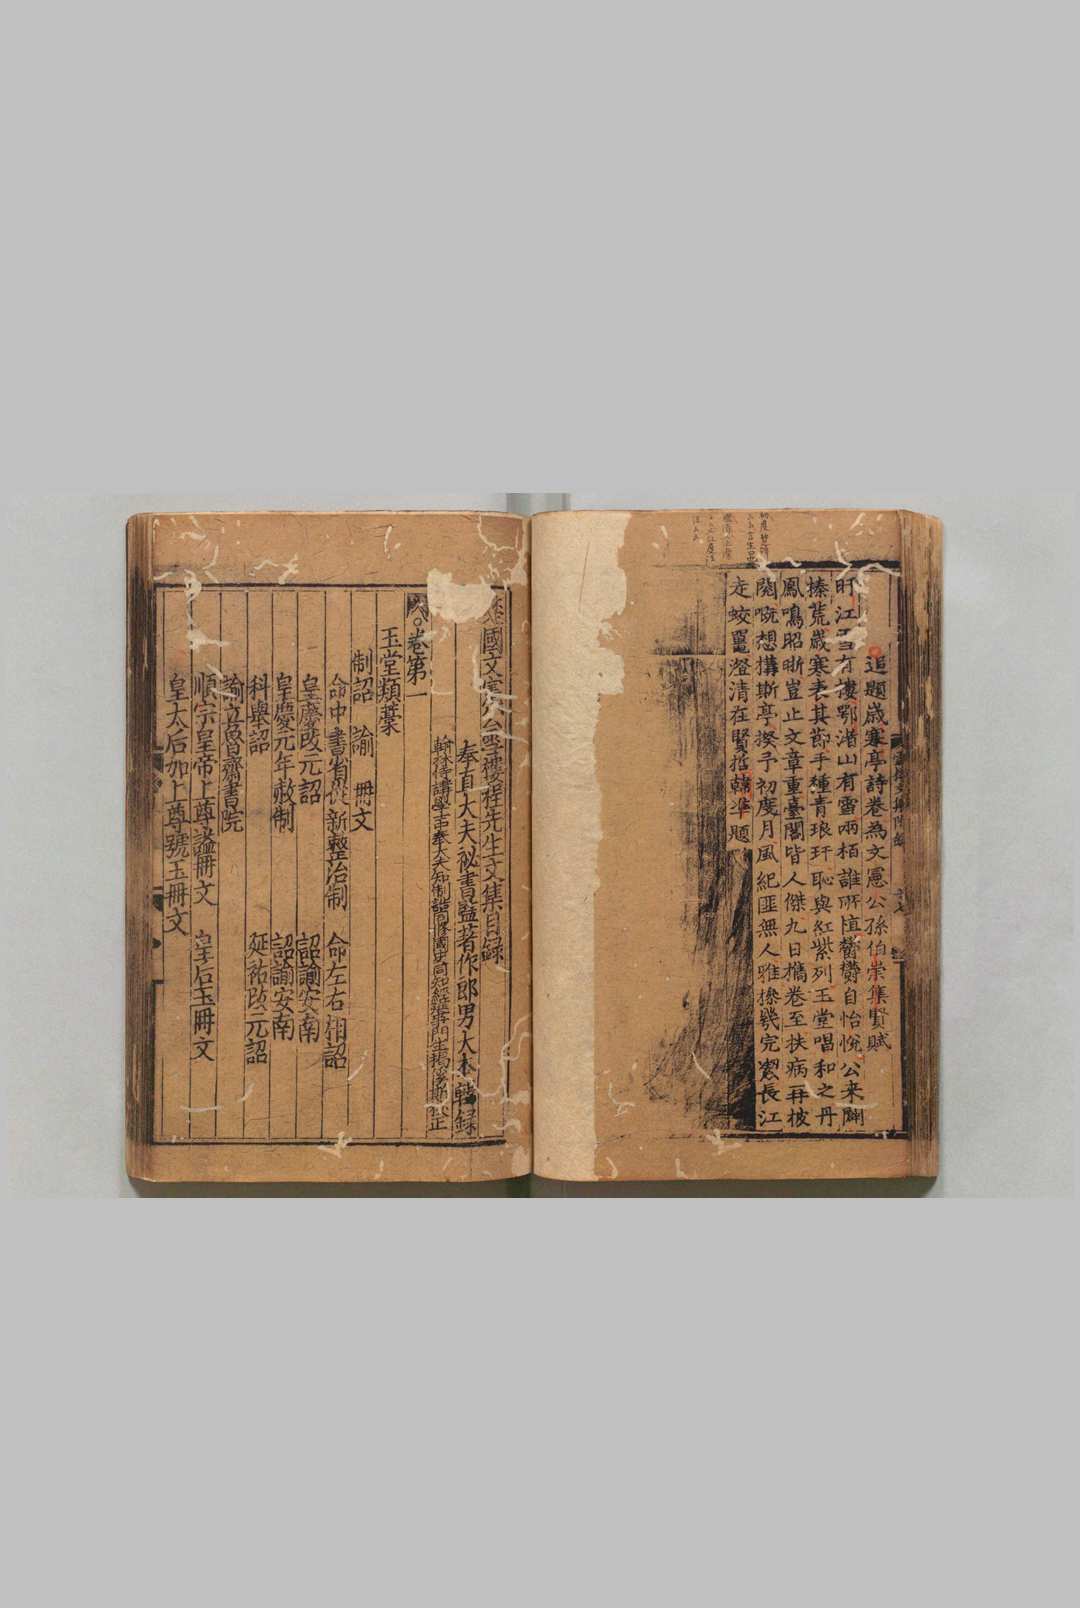 追題歲寒亭詩卷為文憲公孫伯崇集賢賦
盱江雪有樓鄂渚山有雪兩栢誰所植鬱鬱自怡悅公来闢
榛荒歲寒表其節手種青琅玕恥與紅紫列玉堂唱和之丹
鳳鳴昭晣豈止文章重臺閣皆人傑九日攜卷至扶病再披
閱嘅想搆斯亭揆予初度月風紀匪無人雅操幾完潔長江
走蛟鼉澄清在賢哲韓準題
國文憲公雪樓程先生文集目錄
奉直大夫祕書監著作郎男大本輯錄
翰林侍講學士奉大夫知制誥同脩國史同知經筵事門生揭傒斯校正
卷第一
玉堂類藁
制詔 諭 冊文
命中書省從新整治制 命左右相詔
皇慶改元詔 詔諭安南
皇慶元年赦制 詔諭安南
科舉詔 延祐改元詔
諭立魯齋書院
順宗皇帝上尊謚冊文 皇后玉冊文
皇太后加上尊號玉冊文